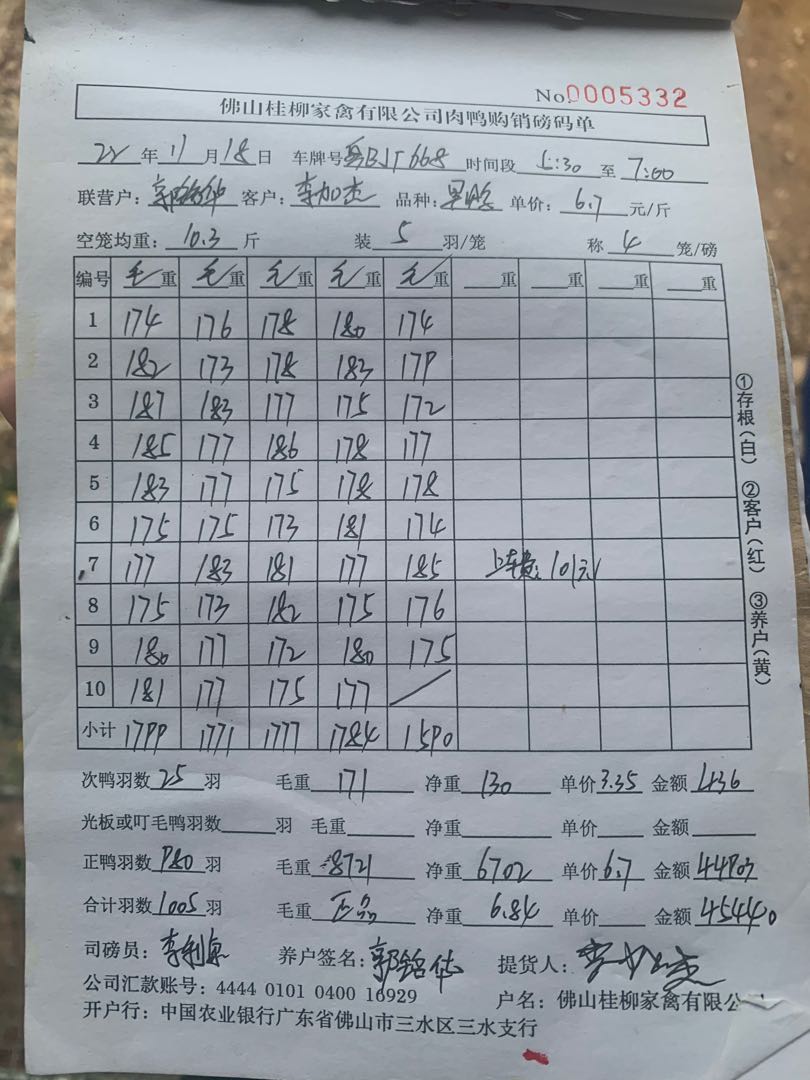 No. 0005332
佛山桂柳家禽有限公司肉鸭购销磅码单
22 年 11 月 18 日 车牌号 粤BJT668 时间段 6:30 至 7:00
联营户: 郭铭华 客户: 李加杰 品种: 单价: 6.7 元/斤
空笼均重: 10.3 斤 装 5 羽/笼 称 4 笼/磅
编号 毛重 毛重 毛重 毛重 毛重 重 重 重 重
1 174 176 178 180 174
2 182 173 178 183 179
3 187 183 177 175 172
4 185 177 186 178 177
5 183 177 175 178 178
6 175 175 173 181 174
7 177 183 181 177 185 上车费: 101元
8 175 173 182 175 176
9 180 177 172 180 175
10 181 177 175 177 /
小计 1799 1771 1777 1784 1590
次鸭羽数 25 羽 毛重 171 净重 130 单价 3.35 金额 436
光板或叮毛鸭羽数 羽 毛重 净重 单价 金额
正鸭羽数 980 羽 毛重 8721 净重 6702 单价 6.7 金额 44903
合计羽数 1005 羽 毛重 正品 净重 6.84 单价 金额 45440
司磅员: 养户签名: 郭铭华 提货人:
公司汇款账号: 4444 0101 0400 16929 户名: 佛山桂柳家禽有限公
开户行: 中国农业银行广东省佛山市三水区三水支行
①存根(白) ②客户(红) ③养户(黄)